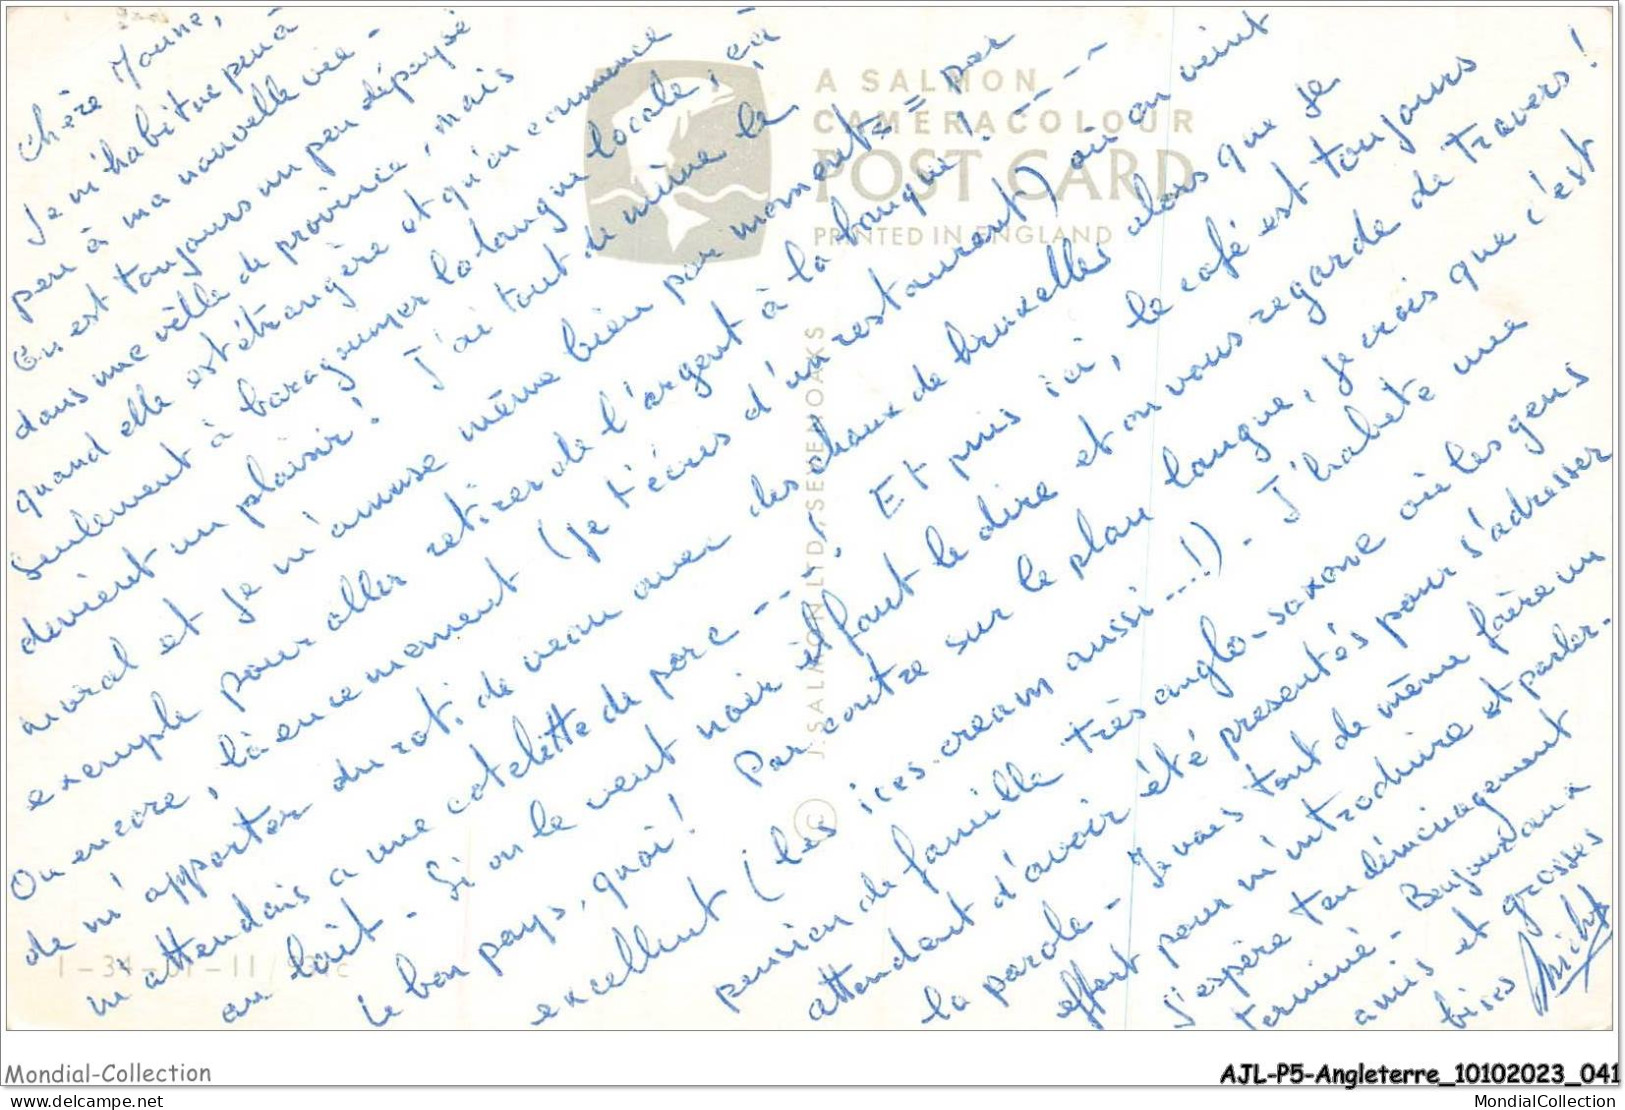 Chère Moune,
Je m'habitue peu à
peu à ma nouvelle vie -
On est toujours un peu dépaysé
dans une ville de province, mais
quand elle est étrangère et qu'on commence
seulement à baragouiner la langue locale, çà
devient un plaisir! J'ai tout de même le
moral et je m'amuse même bien par moments = par
exemple pour aller retirer de l'argent à la banque! ---
Ou encore, là en ce moment (je t'écris d'un restaurant) où on vient
de m'apporter du roti de veau avec des choux de bruxelles alors que je
m'attendais a une cotelette de porc ---! Et puis ici, le café est toujours
au lait - Si on le veut noir il faut le dire et on vous regarde de travers!
le bon pays, quoi! Par contre sur le plan langue, je crois que c'est
excellent (les ices-cream aussi...!) - J'habite une
pension de famille très anglo-saxone où les gens
attendent d'avoir été presentés pour s'adresser
la parole - Je vais tout de même faire un
effort pour m'introduire et parler-
J'espère ton déménagement
terminé - Bonjour aux
amis et grosses
bises
A SALMON
CAMERACOLOUR
POST CARD
PRINTED IN ENGLAND
J. SALMON LTD, SEVENOAKS ©
Mondial-Collection
AJL-P5-Angleterre_10102023_041
delcampe.net
MondialCollection